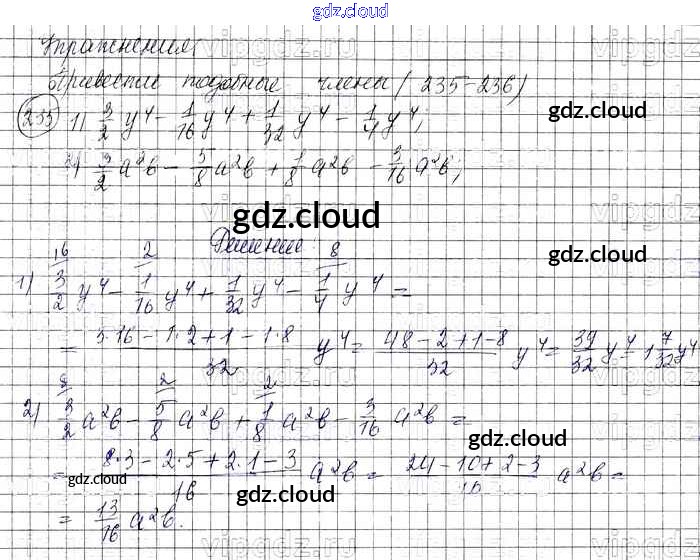 gdz.cloud
Упражнения
Привести подобные члены (235-236)
235 1) 3/2 y⁴ - 1/16 y⁴ + 1/32 y⁴ - 1/4 y⁴;
gdz.cloud
2) 3/2 a²b - 5/8 a²b + 1/8 a²b - 3/16 a²b;
gdz.cloud
Решение:
gdz.cloud
16 2 8
1) 3/2 y⁴ - 1/16 y⁴ + 1/32 y⁴ - 1/4 y⁴ =
= (3·16 - 1·2 + 1 - 1·8)/32 y⁴ = (48 - 2 + 1 - 8)/32 y⁴ = 39/32 y⁴ = 1 7/32 y⁴
8 2 2
2) 3/2 a²b - 5/8 a²b + 1/8 a²b - 3/16 a²b =
gdz.cloud
= (8·3 - 2·5 + 2·1 - 3)/16 a²b = (24 - 10 + 2 - 3)/16 a²b =
gdz.cloud
gdz.cloud
= 13/16 a²b.
gdz.cloud